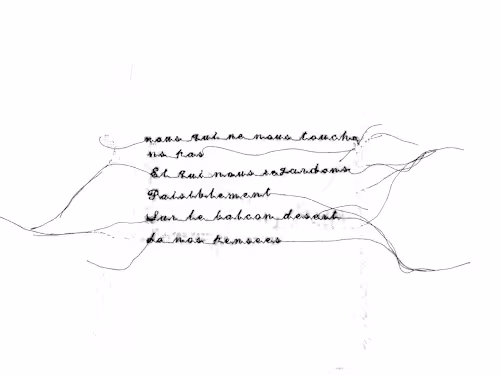 nous qui ne nous toucho
ns pas
Et qui nous regardons
Paisiblement
Sur le balcon desert
de nos pensees